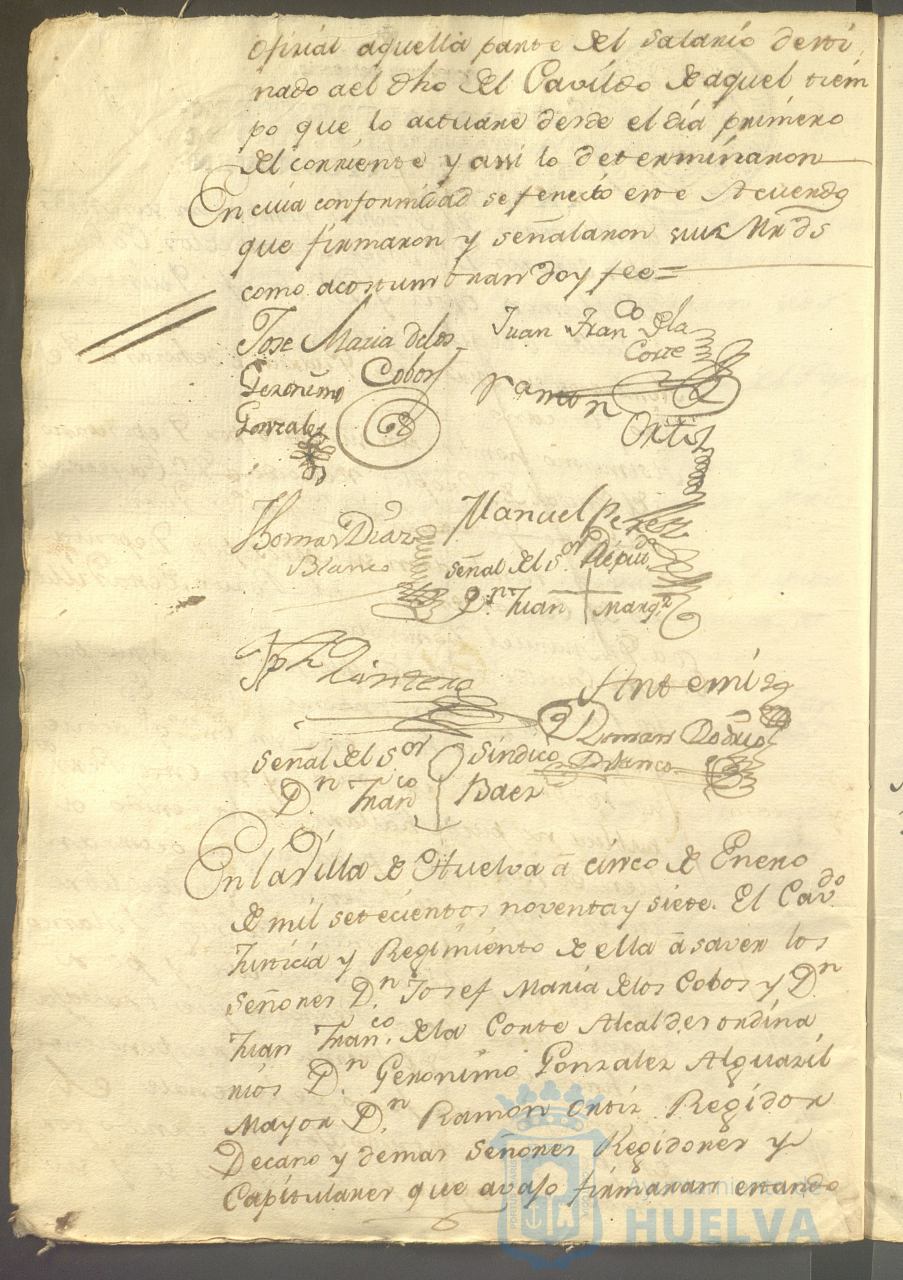 oficial aquella parte del salario desti
nado a el dho del Cavildo de aquel tiem
po que lo actuare desde el dia primero
del corriente y assi lo determinaron
En cuia conformidad se feneció este Acuerdo
que firmaron y señalaron sus Mrds
como acostumbran doy fee=
Jose Maria delos
Cobos
Juan Franco dela
Corte
Geronimo
Gonzales
Ramon
Ortiz
Thomas Diaz
Blanco
Manuel Perez
señal del sor Diputdo
Dn Juan Marqz
Jph Quintero
Ante mi
Blanco
señal del sor sindico
Dn Franco Baez
En la Villa de Huelva á cinco de Enero
de mil setecientos noventa y siete. El Cavdo
Justicia y Regimiento de ella á saver los
señores Dn Josef Maria delos Cobos y Dn
Juan Franco dela Corte Alcaldes ordina
rios Dn Geronimo Gonzalez Alguazil
Mayor Dn Ramón Ortiz Regidor
Decano y demas señores Regidores y
Capitulares que avajo firmaran estando
Ayuntamiento de
HUELVA